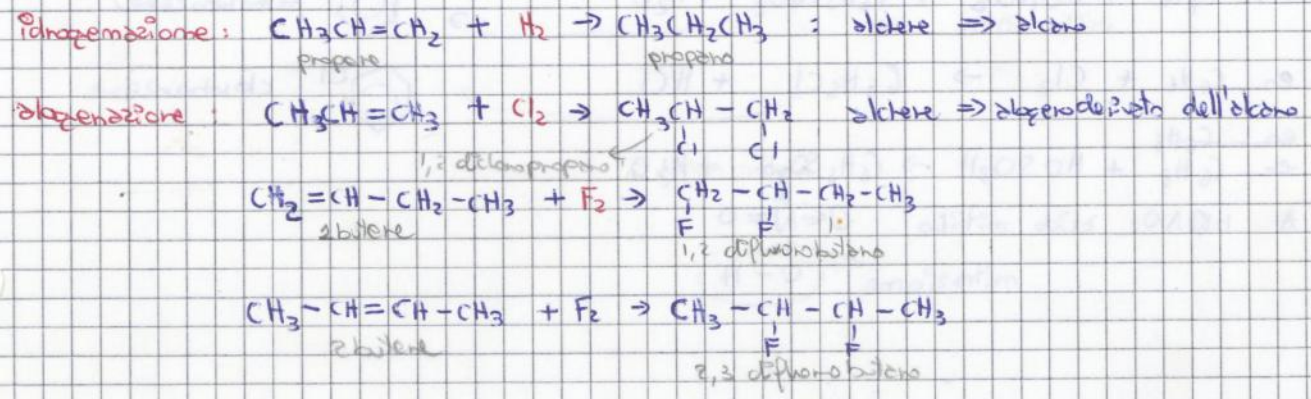 idrogenazione: CH3CH=CH2 + H2 → CH3CH2CH3 : alchene => alcano
propene propano
alogenazione: CH3CH=CH3 + Cl2 → CH3CH - CH2 alchene => alogenoderivato dell'alcano
Cl Cl
1,2 dicloropropano
CH2=CH-CH2-CH3 + F2 → CH2-CH-CH2-CH3
2butene F F
1,2 difluorobutano
CH3-CH=CH-CH3 + F2 → CH3-CH-CH-CH3
2butene F F
2,3 difluorobutano